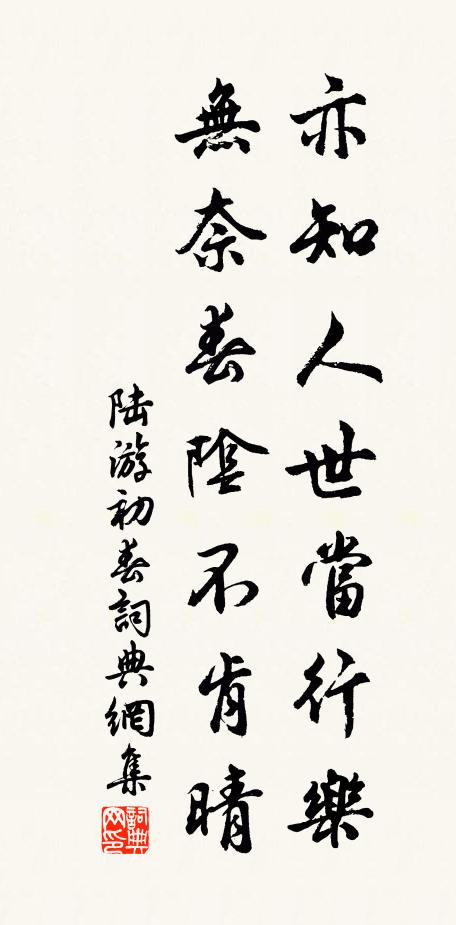 亦知人世當行樂
無奈春陰不肯晴
陸游初春詞典網集
詞典网印